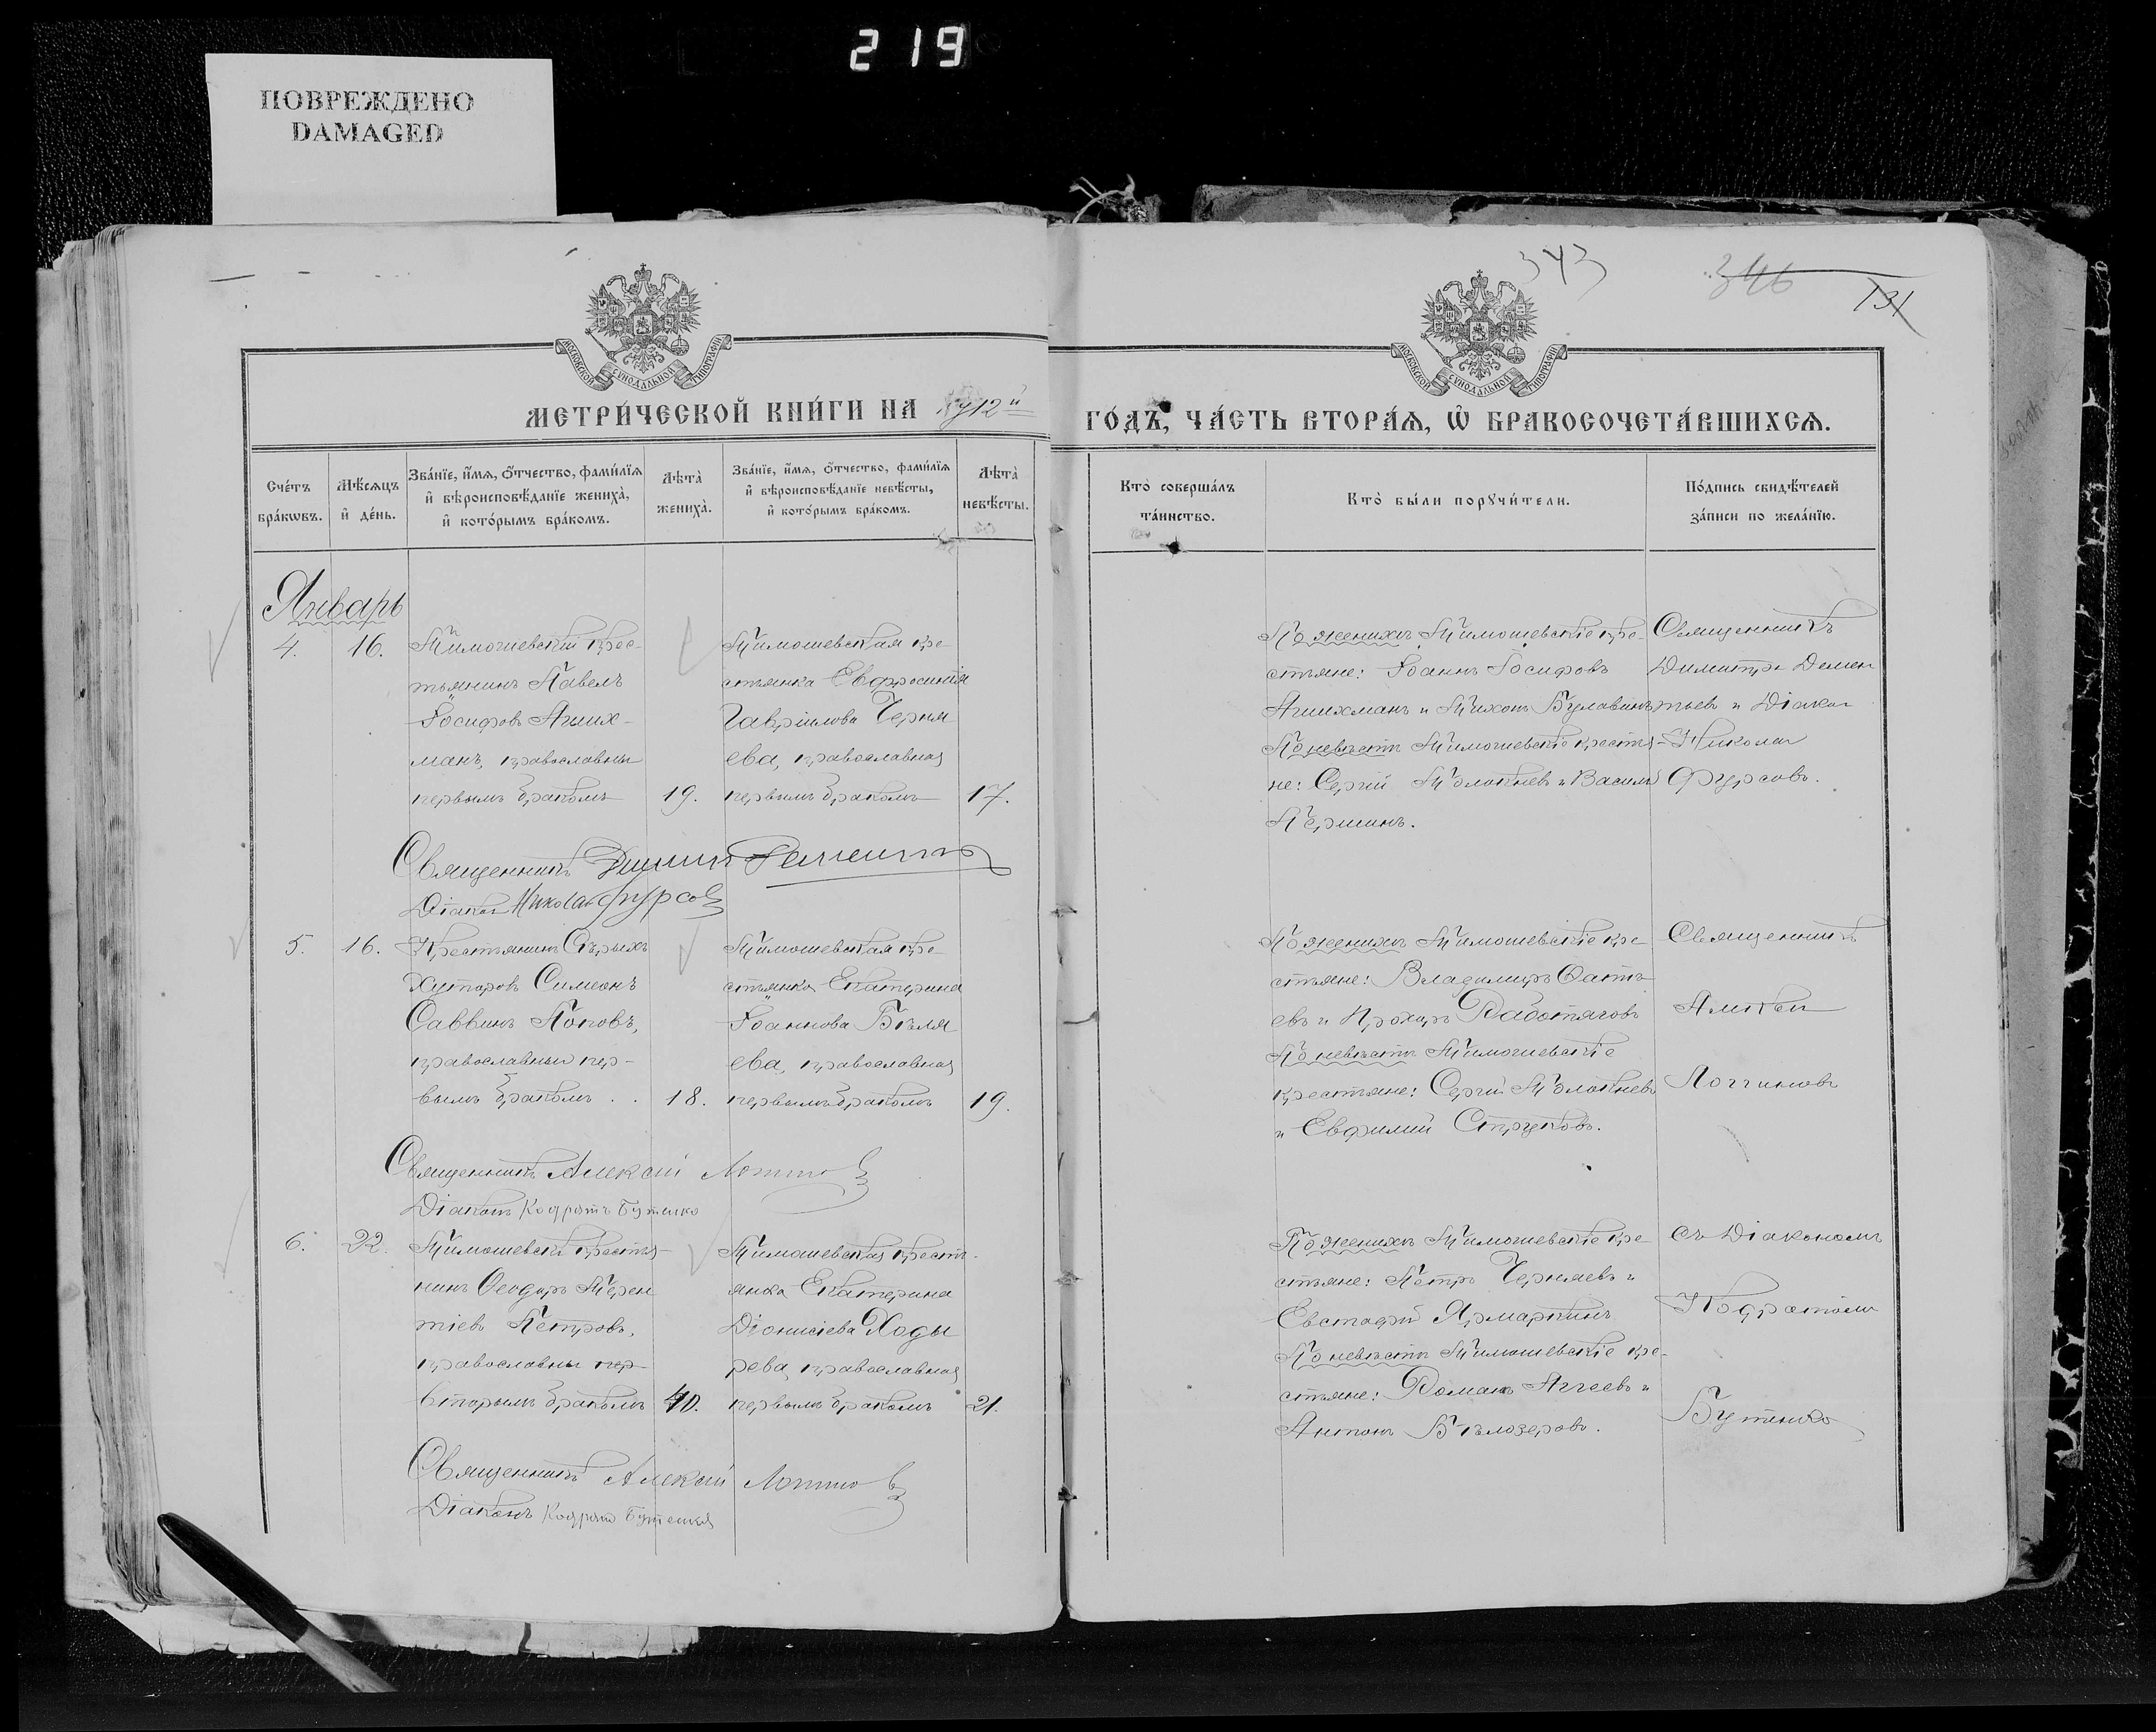 219
ПОВРЕЖДЕНО
DAMAGED
343
346
131
МОСКОВСКОЙ СѴНОДАЛЬНОЙ ТИПОГРАФІИ
МОСКОВСКОЙ СѴНОДАЛЬНОЙ ТИПОГРАФІИ
МЕТРИ́ЧЕСКОЙ КНИ́ГИ НА 1912й
ГО́ДЪ, ЧА́СТЬ ВТОРА́Я, Ѡ БРАКОСОЧЕТА́ВШИХСЯ.
Сче́тъ
бра́кωвъ.
Мѣ́сяцъ
и҆ де́нь.
Зва́нїе, и҆́мя, ѻ҆́тчество, фами́лїя
и҆ вѣроисповѣ́данїе жениха̀,
и҆ кото́рымъ бра́комъ.
Лѣ́та̀
жениха̀.
Зва́нїе, и҆́мя, ѻ҆́тчество, фами́лїя
и҆ вѣроисповѣ́данїе невѣ́сты,
и҆ кото́рымъ бра́комъ.
Лѣ́та̀
невѣ́сты.
Кто̀ соверша́лъ
та́инство.
Кто̀ бы́ли порꙋчи́тели.
По́дпись свидѣ́телей
за́писи по жела́нїю.
Январь
4.
16.
Тимошевскій крес-
тьянинъ Павелъ
Іосифовъ Агиих-
манъ, православный
первымъ бракомъ
19.
Тимошевская кре-
стьянка Евфросинія
Гавріилова Черня
ева, православная
первымъ бракомъ
17.
По женихѣ Тимошевскіе кре-
стьяне: Іоаннъ Іосифовъ
Агиихманъ и Тихонъ Булавинъ
По невѣстѣ Тимошевскіе крестья-
не: Сергій Толокневъ и Василій
Першинъ.
Священникъ
Димитрій Демен
тьевъ и Діакон
Николай
Фурсовъ.
Священникъ
Діаконъ Николай Фурсовъ
5.
16.
Крестьянинъ Старыхъ
Хуторовъ Симеонъ
Саввинъ Поповъ,
православный пер-
вымъ бракомъ . .
18.
Тимошевская кре
стьянка Екатерина
Іоаннова Бѣля
ева, православная
первымъ бракомъ
19.
По женихѣ Тимошевскіе кре
стьяне: Владимиръ Фатѣ-
евъ и Прохоръ Работяговъ
По невѣстѣ Тимошевскіе
крестьяне: Сергій Толокневъ
и Евфимій Струковъ.
Священникъ
Алексѣй
Логгиновъ
Священникъ Алексѣй Логгиновъ
Діаконъ Кодратъ Бутенко
6.
22.
Тимошевскій крестья-
нинъ Ѳеодоръ Терен
тіевъ Петровъ,
православный пер-
вторымъ бракомъ
40.
Тимошевская кресть-
янка Екатерина
Діонисіева Ходы
рева, православная
первымъ бракомъ
21.
По женихѣ Тимошевскіе кре
стьяне: Петръ Черняевъ и
Евстафій Ярмаркинъ
По невѣстѣ Тимошевскіе кре-
стьяне: Романъ Аггеевъ и
Антонъ Бѣлозеровъ.
съ Діакономъ
Кодратомъ
Бутенко
Священникъ Алексѣй Логгиновъ
Діаконъ Кодратъ Бутенко